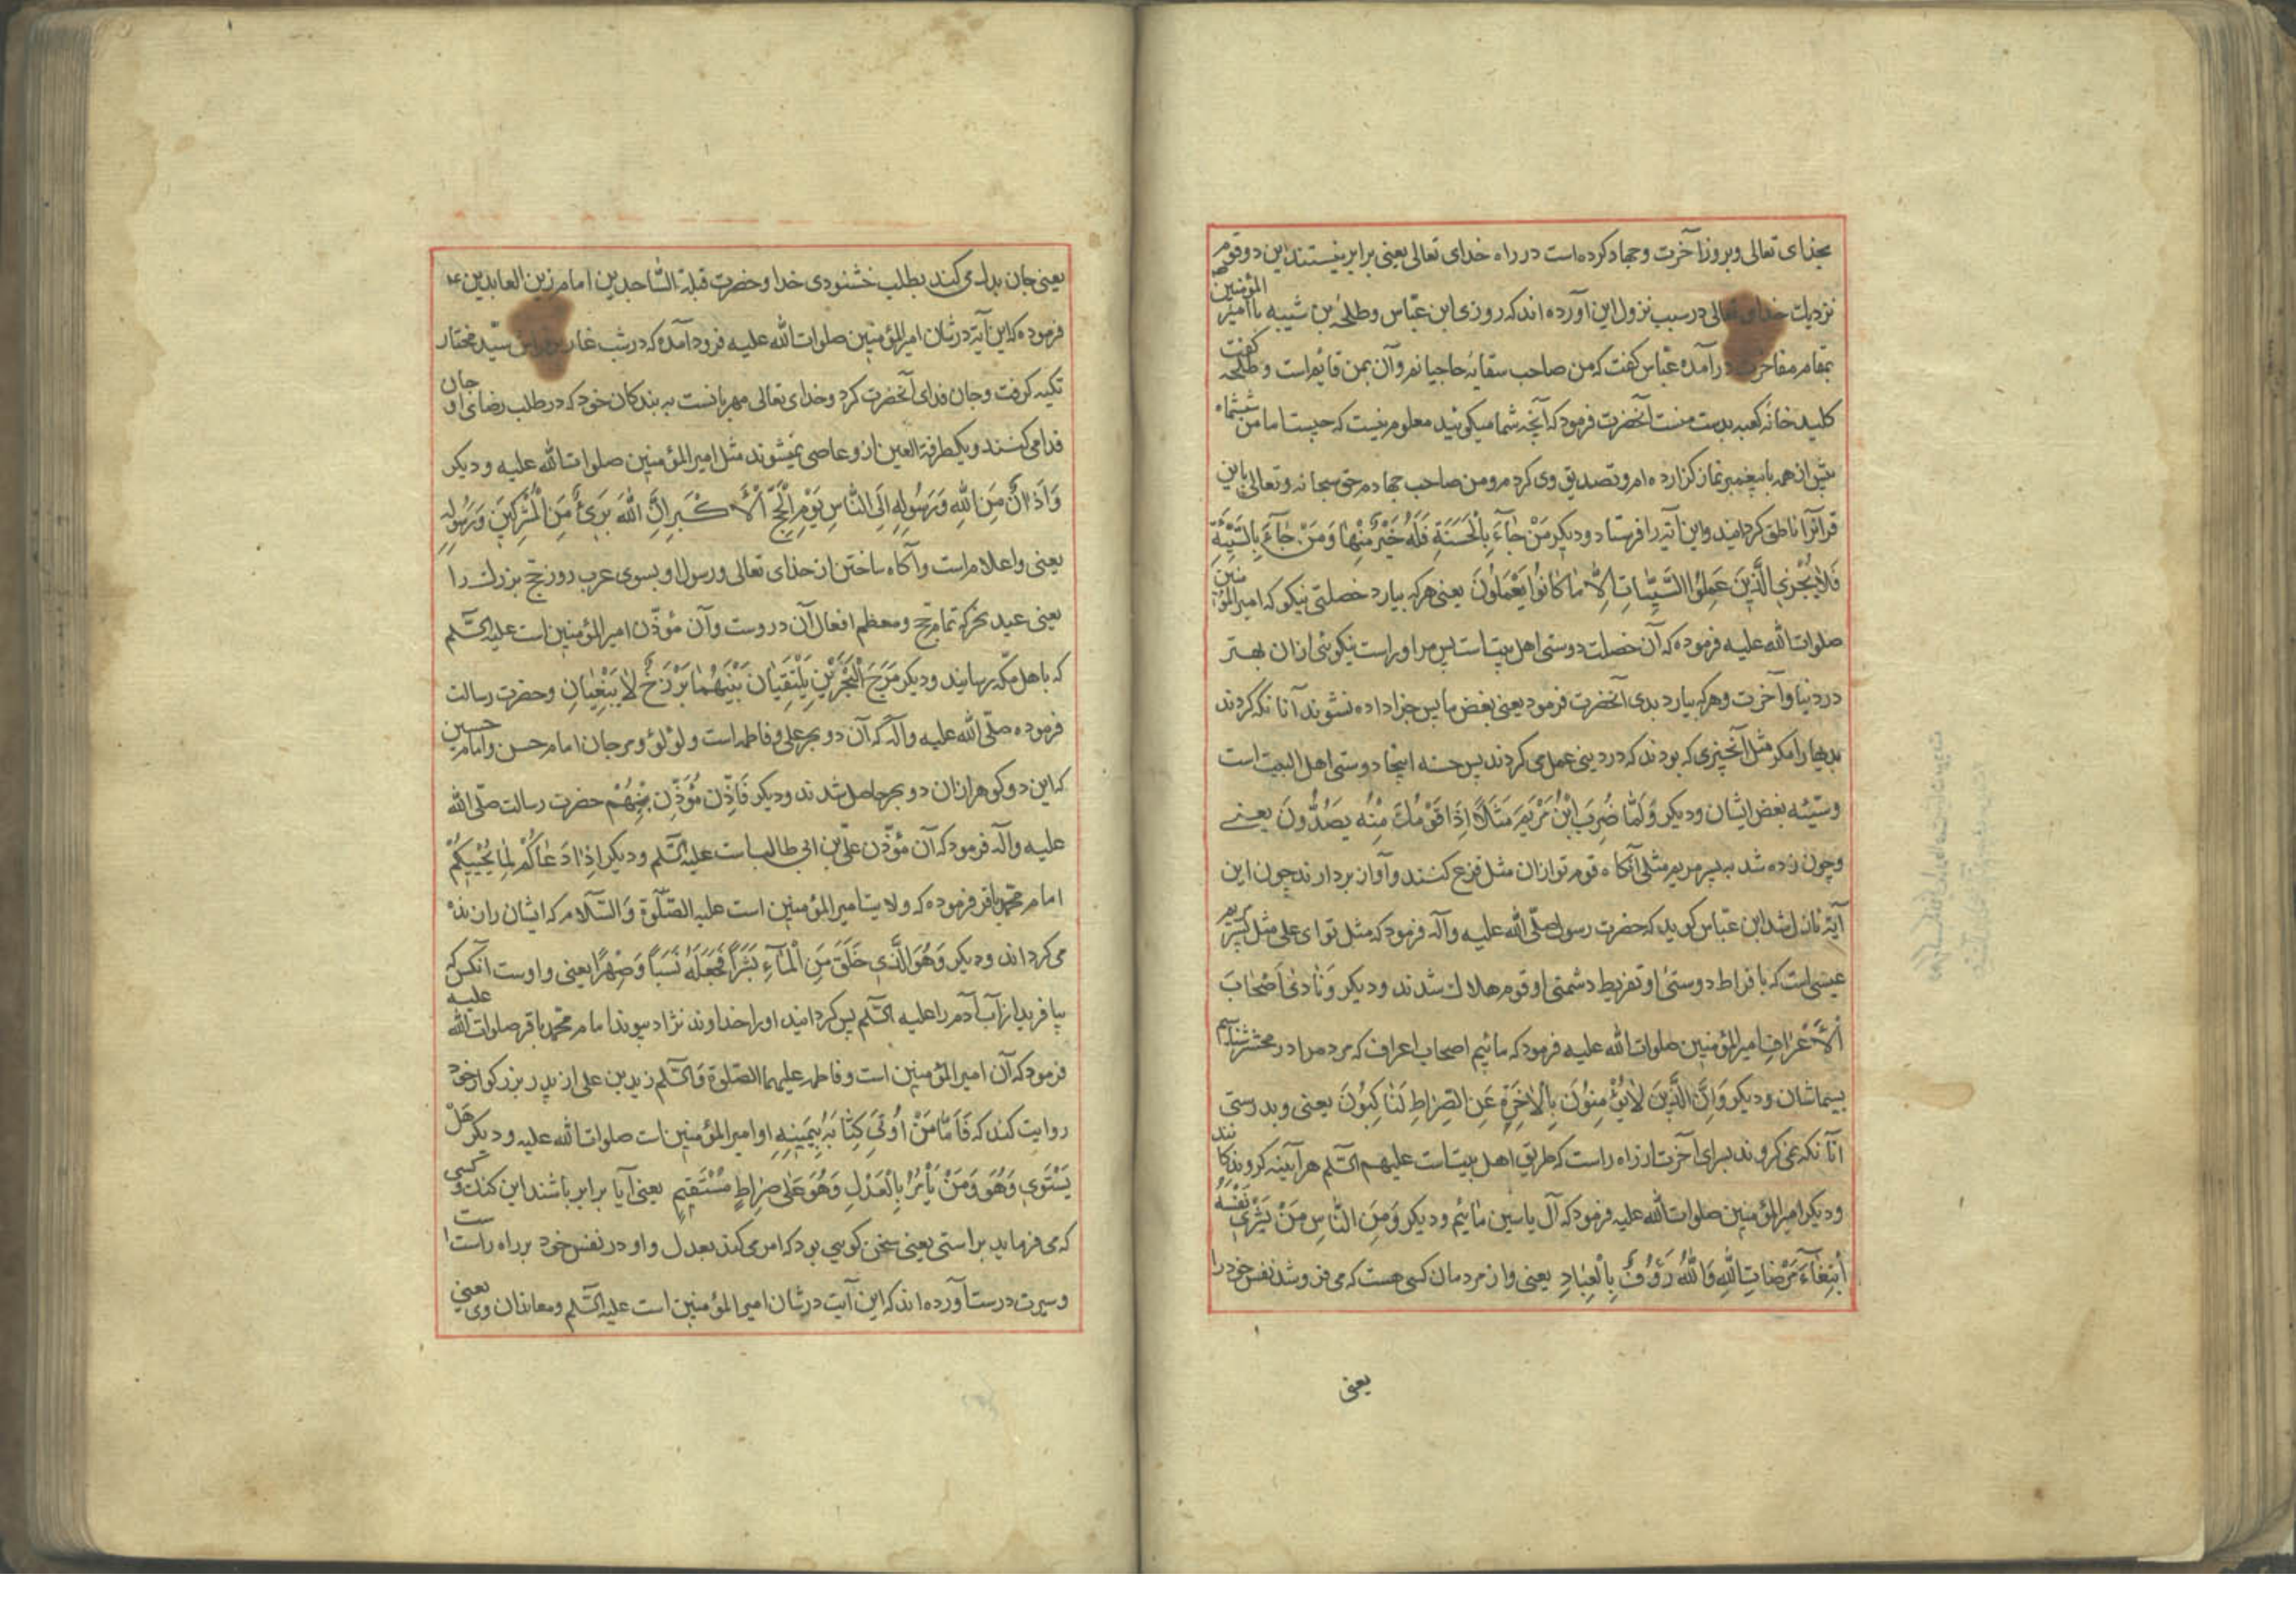 بخدای تعالی و بروز آخرت و جهاد کرده است در راه خدای تعالی یعنی برابر نیستند این دو قوم
نزدیك خدای تعالی در سبب نزول این آورده اند که روزی ابن عبّاس و طلحهٔ بن شیبه با امیر المؤمنین
بمقام مفاخرت درآمده عبّاس کفت که من صاحب سقایهٔ حاجیانم و آن بمن قایم است و طلحه کفت
کلید خانهٔ کعبه بدست منست آنحضرت فرمود که آنچه شما میکوئید معلوم نیست که چیست اما من ششماه
پیش از همه با پیغمبر نماز کزارده ام و تصدیق وی کردم و من صاحب جهادم حق سبحانه و تعالی باین
قرآنرا ناطق کردانید و این آیه را فرستاد و دیکر مَنْ جَآءَ بِالْحَسَنَةِ فَلَهُ خَیْرٌ مِنْهَا وَمَنْ جَآءَ بِالسَّیِّئَةِ
فَلَا یُجْزَی الَّذِینَ عَمِلُوا السَّیِّئَاتِ اِلَّا مَا کَانُوا یَعْمَلُونَ یعنی هرکه بیارد خصلتی نیکو که امیر المؤمنین
صلوات الله علیه فرموده که آن خصلت دوستی اهل بیتاست پس مر او راست نیکوئی ازان بهتر
در دنیا و آخرت و هرکه بیارد بدی آنحضرت فرمود یعنی بغض ما پس جزا داده نشوند آنانکه کردند
بدیها را مکر مثل آنچیزی که بودند که در دینی عمل می کردند پس حسنه اینجا دوستی اهل البیت است
و سیّئه بغض ایشان و دیکر وَ لَمَّا ضُرِبَ ابْنُ مَرْیَمَ مَثَلًا اِذَا قَوْمُكَ مِنْهُ یَصُدُّونَ یعنی
و چون زده شد به پسر مریم مثلی آنکاه قوم تو ازان مثل فزع کنند و آواز بردارند چون این
آیه نازل شد ابن عبّاس کوید که حضرت رسول صلّی الله علیه و آله فرمود که مثل تو ای علی مثل پسر مریم
عیسی است که بافراط دوستی او و تفریط دشمنی او قوم هلاك شدند و دیکر وَ نَادٰی اَصْحَابَ
الْاَعْرَافِ امیر المؤمنین صلوات الله علیه فرمود که مائیم اصحاب اعراف که مردمرا در محشر شناسیم
بسیماشان و دیکر وَ اِنَّ الَّذِینَ لَا یُؤْمِنُونَ بِالْاٰخِرَةِ عَنِ الصِّرَاطِ لَنَاکِبُونَ یعنی و بدرستی
آنانکه نمی کروند بسرای آخرت از راه راست که طریق اهل بیتاست علیهم السّلم هرآینه کردند
و دیکر امیر المؤمنین صلوات الله علیه فرمود که آل یاسین مائیم و دیکر وَ مِنَ النَّاسِ مَنْ یَشْرِی نَفْسَهُ
ابْتِغَآءَ مَرْضَاتِ اللّٰهِ وَ اللّٰهُ رَؤُفٌ بِالْعِبَادِ یعنی و از مردمان کسی هست که می فروشد نفس خود را
یعنی
یعنی جان بدل می کند بطلب خشنودی خدا و حضرت قبلة السّاجدین امام زین العابدین ع
فرموده که این آیة در شان امیر المؤمنین صلوات الله علیه فرود آمده که در شب غار سیّد مختار
تکیه کرفت و جان فدای آنحضرت کرد و خدای تعالی مهربانست به بندکان خود که در طلب رضای او جان
فدا می کنند و یکطرفة العین ازو عاصی نمیشوند مثل امیر المؤمنین صلوات الله علیه و دیکر
وَ اَذَانٌ مِنَ اللّٰهِ وَرَسُولِهِ اِلَی النَّاسِ یَوْمَ الْحَجِّ الْاَکْبَرِ اِنَّ اللّٰهَ بَرِیءٌ مِنَ الْمُشْرِکِینَ وَرَسُولِهِ
یعنی و اعلام است و آکاه ساختن از خدای تعالی و رسول او بسوی عرب روز حج بزرك را
یعنی عید نحر که تمام حج و معظم افعال آن دروست و آن مؤذّن امیر المؤمنین است علیه السّلم
که باهل مکّه رسانید و دیکر مَرَجَ الْبَحْرَیْنِ یَلْتَقِیَانِ بَیْنَهُمَا بَرْزَخٌ لَا یَبْغِیَانِ و حضرت رسالت
فرموده صلّی الله علیه و آله که آن دو بحر علی و فاطمه است و لؤلؤ و مرجان امام حسن و امام حسین
که این دو کوهر ازان دو بحر حاصل شدند و دیکر فَاَذَّنَ مُؤَذِّنٌ بَیْنَهُمْ حضرت رسالت صلّی الله
علیه و آله فرمود که آن مؤذّن علیّ بن ابی طالبست علیه السّلم و دیکر اِذَا دَعَاکُمْ لِمَا یُحْیِیکُمْ
امام محمّد باقر فرموده که ولایت امیر المؤمنین است علیه الصّلوة وَ السّلام که ایشان را زنده
می کرداند و دیکر وَهُوَ الَّذِی خَلَقَ مِنَ الْمَآءِ بَشَرًا فَجَعَلَهُ نَسَبًا وَ صِهْرًا یعنی و اوست آنکس که
بیافرید از آب آدم را علیه السّلم پس کردانید او را خداوند نژاد و پیوند امام محمّد باقر صلوات الله علیه
فرمود که آن امیر المؤمنین است و فاطمه علیهما الصّلوة وَ السّلم زید بن علی از پدر بزرکوار خود
روایت کند که فَاَمَّا مَنْ اُوتِیَ کِتَابَهُ بِیَمِینِهِ او امیر المؤمنین است صلوات الله علیه و دیکر هَلْ
یَسْتَوِی هُوَ وَمَنْ یَأْمُرُ بِالْعَدْلِ وَهُوَ عَلٰی صِرَاطٍ مُسْتَقِیمٍ یعنی آیا برابر باشند این کنك و کسی
که می فرماید براستی یعنی سخن کویی بود که امر می کند بعدل و او در نفس خود بر راه راست است
و سیرت درست آورده اند که این آیت در شان امیر المؤمنین است علیه السّلم و معاندان وی یعنی